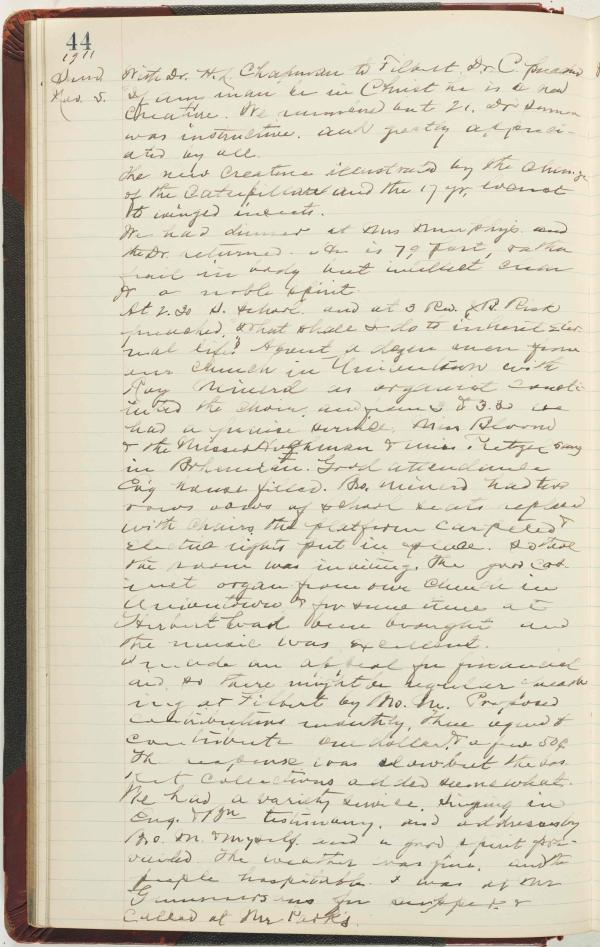 44
1911
Sund
Nov. 5.
With Dr. H. L. Chapman to Filbert. Dr. C. preached
If any man be in Christ he is a new
Creature. We numbered but 21. Dr's sermon
was instructive, and greatly appreci-
ated by all.
The new creature illustrated by the change
of the Caterpillar and the 17 yr. locust
to winged insects.
We had dinner at Mrs Murphy's and
the Dr. returned. He is 79 past, rather
frail in body but intellect clear
& a noble spirit
At 2.30 S. School. and at 3 Rev. B. Risk
preached, What shall I do to inherit eter
nal life? About a dozen men from
our church in Uniontown with
Ray Minerd as organist consti
tuted the choir, and from 3 to 3.30 we
had a praise service. Miss Bloom
& the Misses Hughman & Miss Pretzer sang
in Bohemian. Good attendance
Eng house filled. Bro. Minerd had two
rows of school seats replaced
with chairs the platform carpeted &
Electric lights put in place. So that
the room was inviting. The good cab
inet organ from our church in
Uniontown & for some time at
Herbert had been brought and
the music was excellent.
I made an appeal for financial
aid so there might be regular preach
ing at Filbert by Bro. M. Proposed
contributions monthly, three agreed to
contribute one dollar, & a few 50¢
The response was slow but the bas
ket collections added somewhat.
We had a variety service, singing in
Eng. & Bn testimony, and addresses by
Bro. M. & myself and a good spirit pre-
vailed. The weather was fine, and the
people hospitable. I was at Mr
for supper &
Called at Mr Park's.